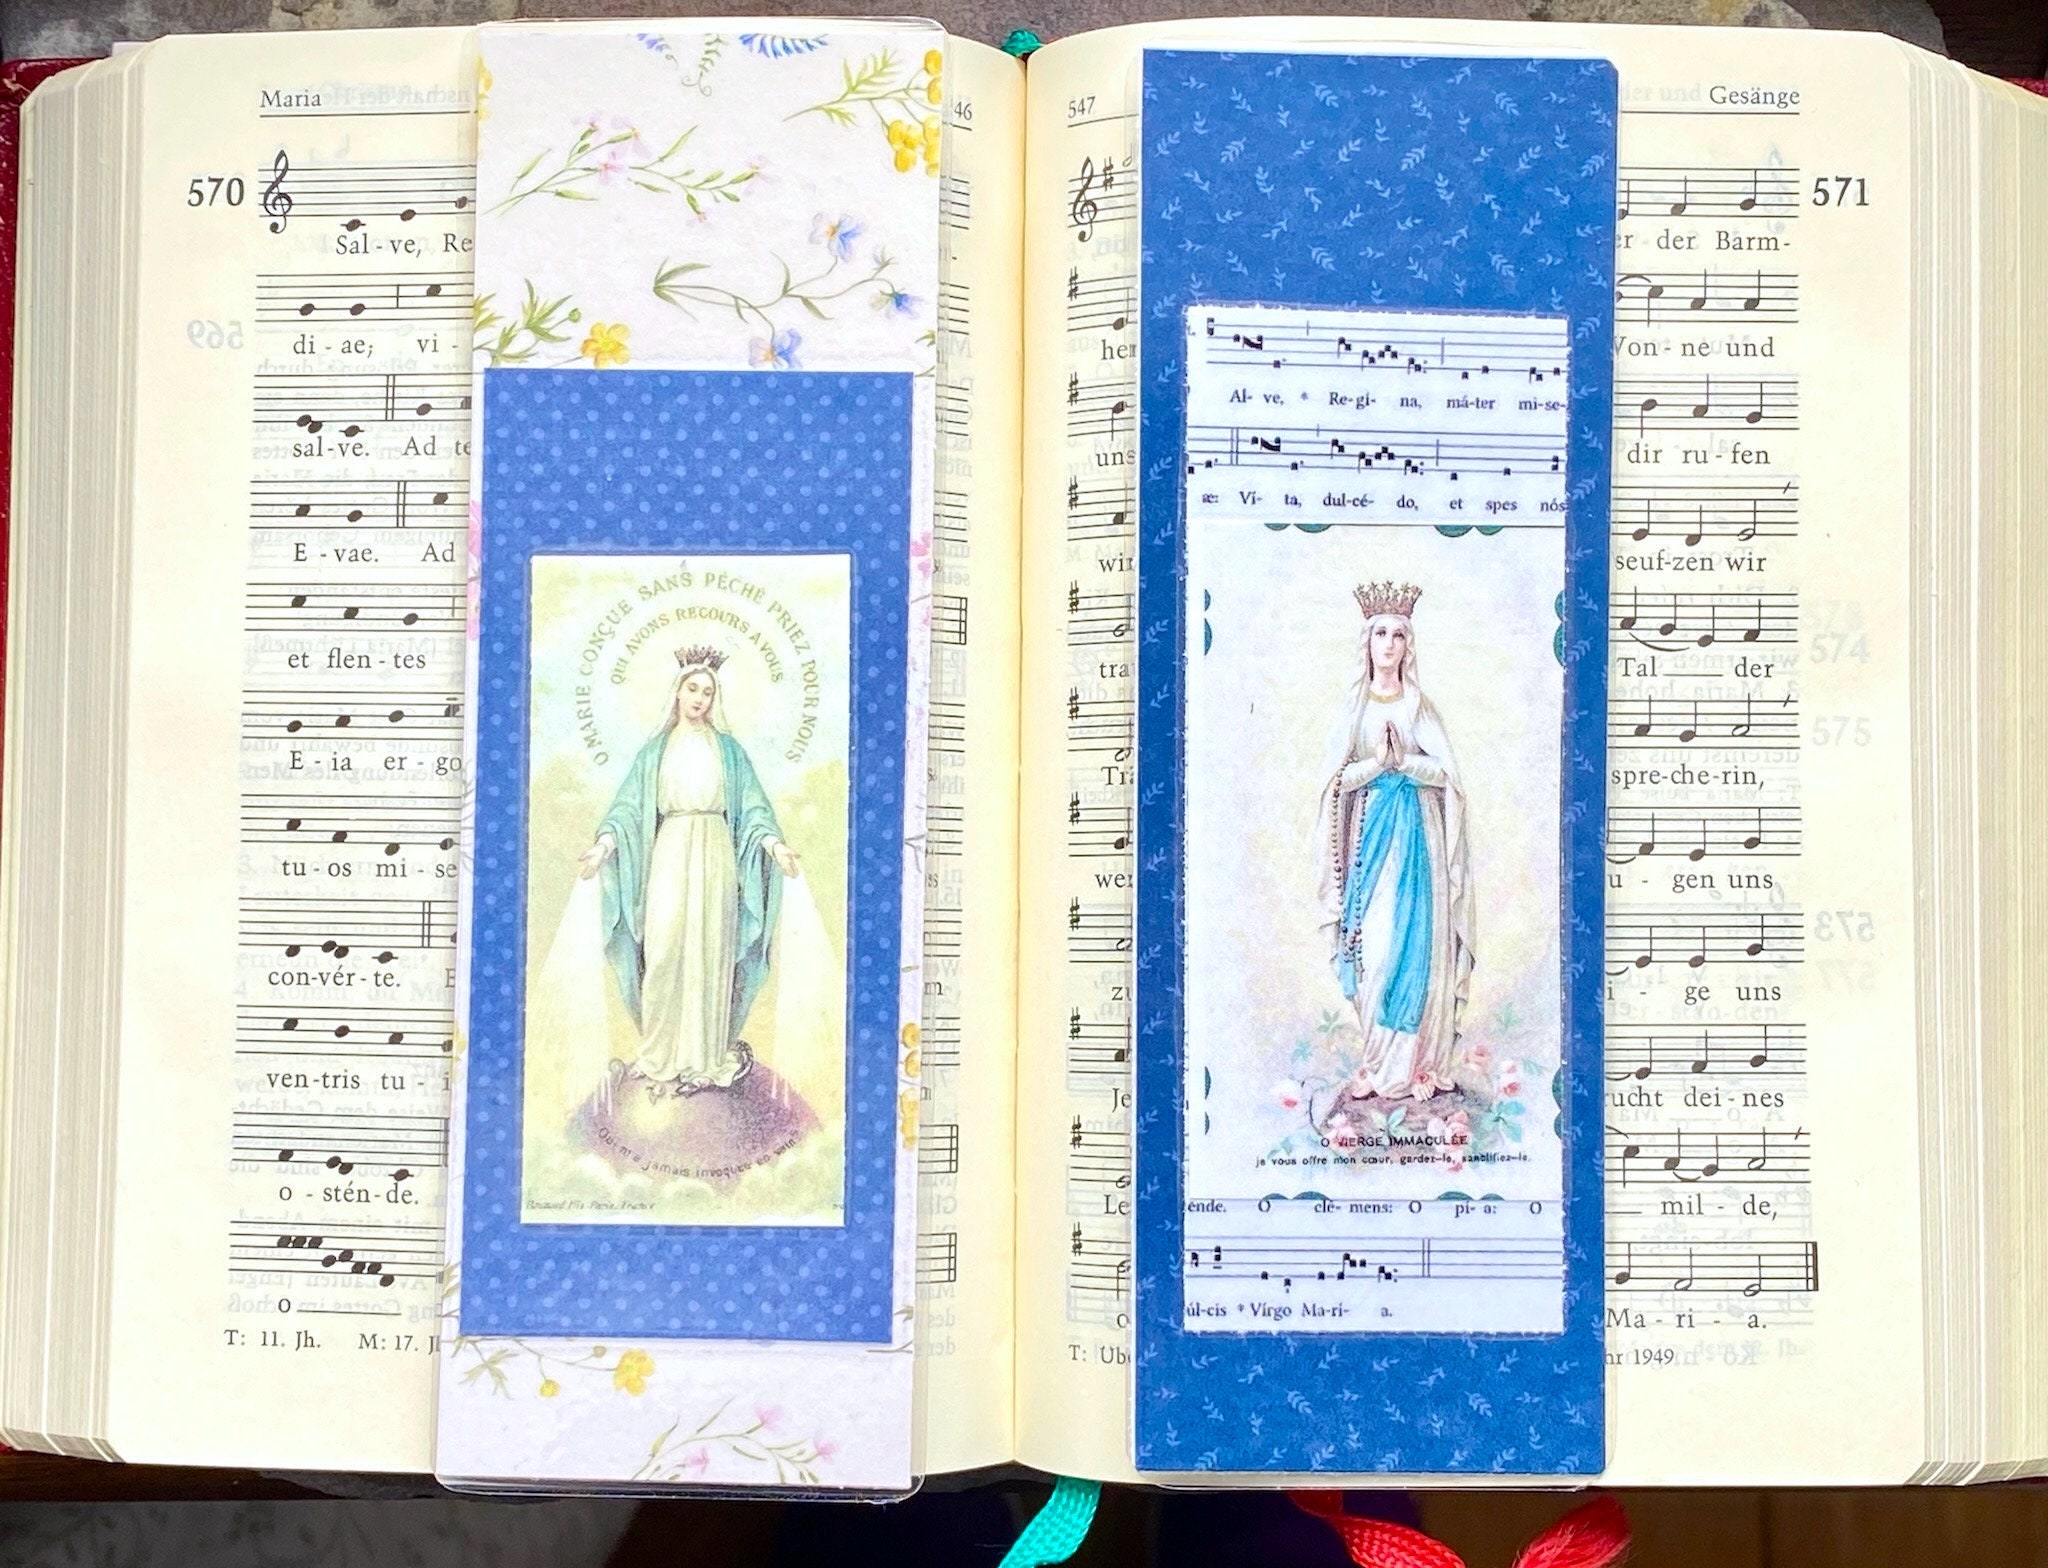 Maria
46
570
Sal - ve, Re
di - ae; vi -
sal - ve. Ad te
E - vae. Ad
et flen - tes
E - ia er - go
tu - os mi - se
con - vér - te.
ven - tris tu - i
o - stén - de.
o
T: 11. Jh. M: 17. Jh
O MARIE CONÇUE SANS PÉCHÉ PRIEZ POUR NOUS
QUI AVONS RECOURS A VOUS
547
Gesänge
571
er der Barm -
her
Von - ne und
uns
dir ru - fen
wir
seuf - zen wir
tra
Tal der
spre - che - rin,
wer
u - gen uns
zu
i - ge uns
Je
rucht dei - nes
Le
mil - de,
o
Ma - ri - a.
T: Üb
hr 1949
Al - ve, * Re - gí - na, má - ter mi - se -
æ: Ví - ta, dul - cé - do, et spes nós
O VIERGE IMMACULÉE
je vous offre mon cœur, gardez-le, sanctifiez-le.
énde. O clé - mens: O pí - a: O
úl - cis * Vírgo Ma - rí - a.